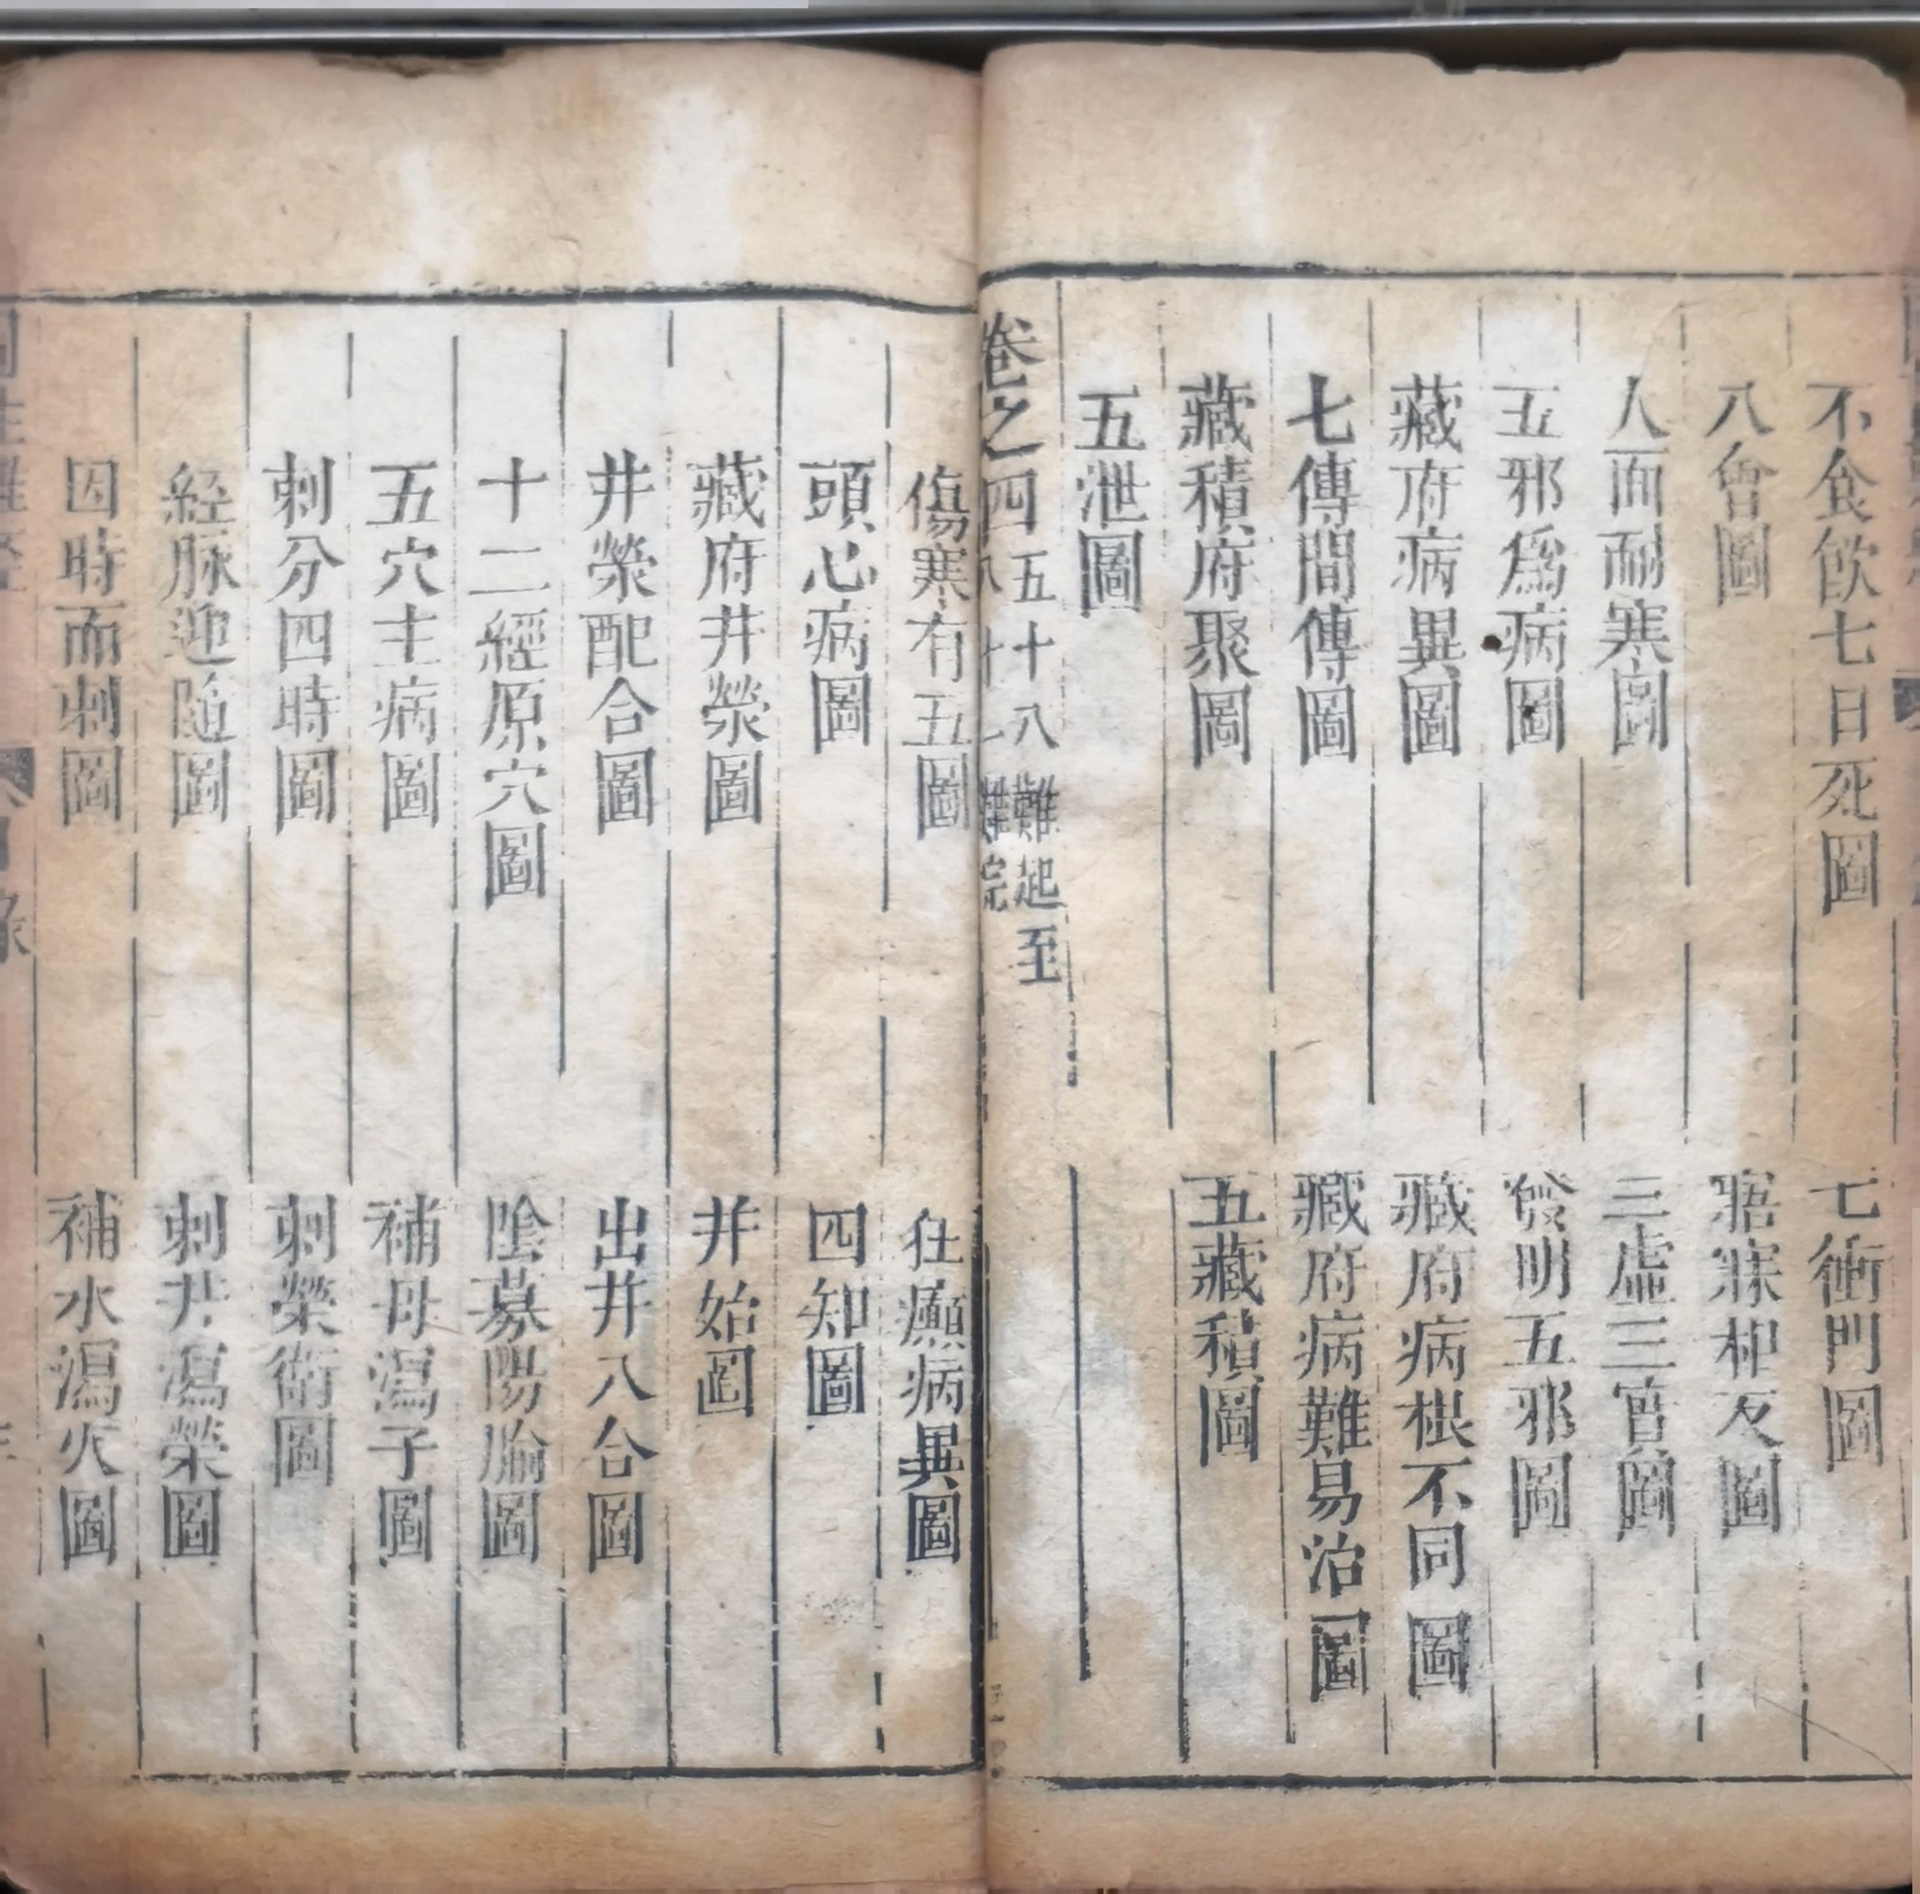 不食飲七日死圖　七衝門圖
八會圖　寤寐相反圖
人面耐寒圖　三虛三實圖
五邪為病圖　發明五邪圖
藏府病異圖　藏府病根不同圖
七傳間傳圖　藏府病難易治圖
藏積府聚圖　五藏積圖
五泄圖
卷之四
五十八難起至
八十一難完
傷寒有五圖　狂癲病異圖
頭心病圖　四知圖
藏府井滎圖　井始圖
井滎配合圖　出井入合圖
十二經原穴圖　陰募陽腧圖
五穴主病圖　補母瀉子圖
刺分四時圖　刺榮衛圖
経脉迎隨圖　刺井瀉榮圖
因時而刺圖　補水瀉火圖